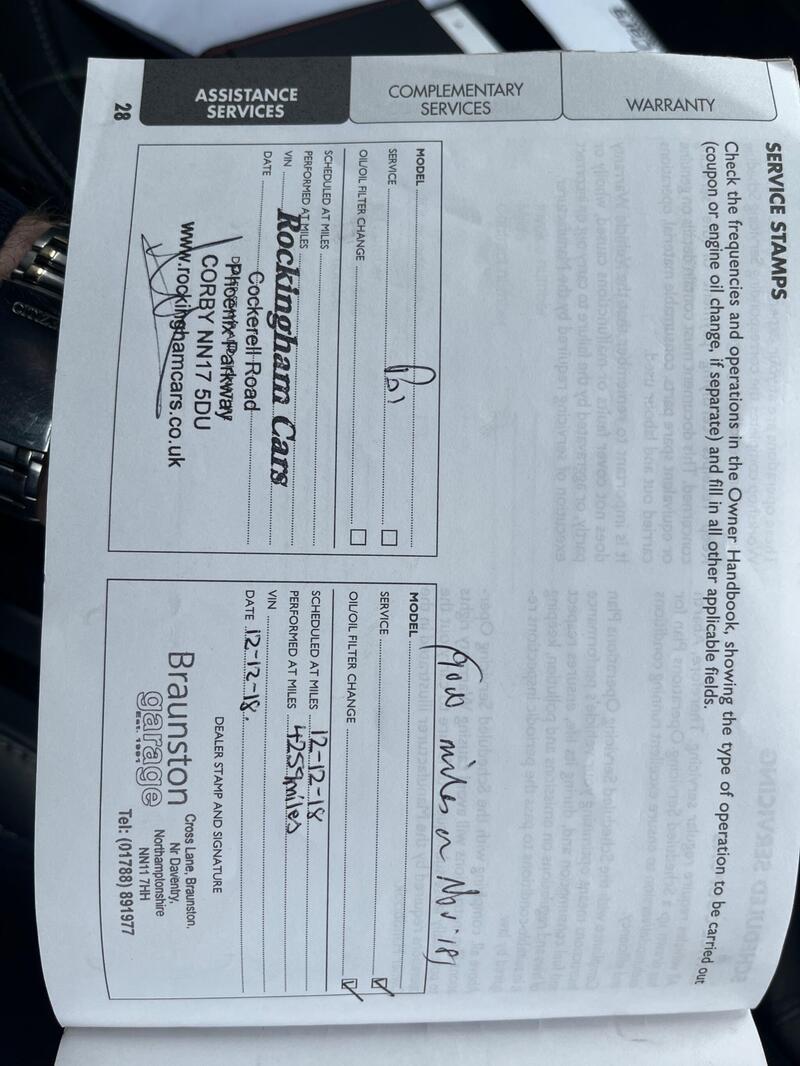 SERVICE STAMPS
Check the frequencies and operations in the Owner Handbook, showing the type of operation to be carried out
(coupon or engine oil change, if separate) and fill in all other applicable fields.
WARRANTY
COMPLEMENTARY
SERVICES
ASSISTANCE
SERVICES
MODEL
SERVICE PDI
OIL/OIL FILTER CHANGE
SCHEDULED AT MILES
PERFORMED AT MILES
VIN
DATE
Rockingham Cars
Cockerell Road
Phoenix Parkway
CORBY NN17 5DU
www.rockinghamcars.co.uk
miles Nov '18)
MODEL
SERVICE
OIL/OIL FILTER CHANGE
SCHEDULED AT MILES 12-12-18
PERFORMED AT MILES 4259 miles
VIN
DATE 12-12-18.
DEALER STAMP AND SIGNATURE
Braunston
garage
Est. 1991
Cross Lane, Braunston,
Nr Daventry,
Northamptonshire
NN11 7HH
Tel: (01788) 891977
28